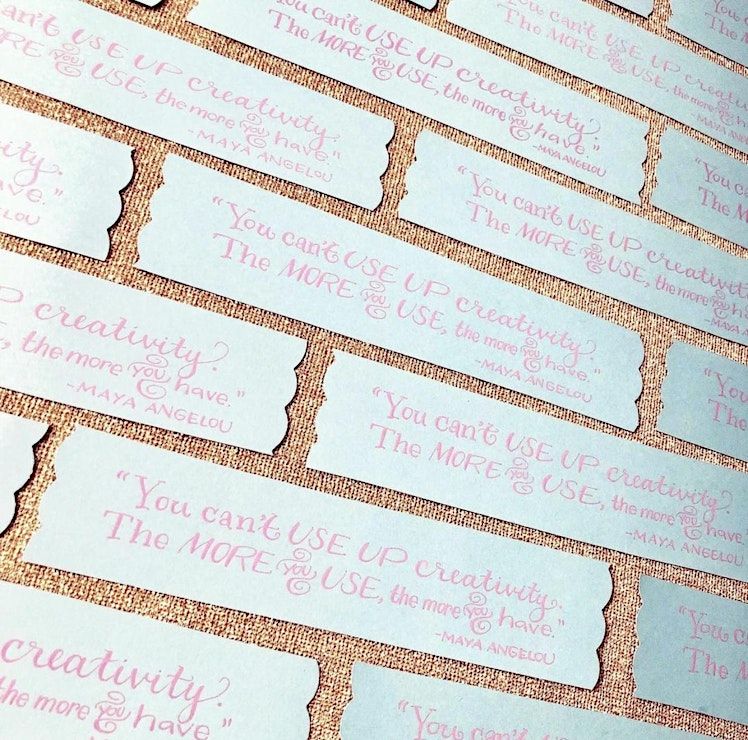 "You can't USE UP creativity.
The MORE YOU USE, the more YOU have."
-MAYA ANGELOU
"You can't USE UP creativity.
The MORE YOU USE, the more YOU
-MAYA
You
The
can't USE UP creativity.
MORE YOU USE, the more YOU have."
-MAYA ANGELOU
"You can't USE UP creativity.
The MORE YOU USE, the more YOU have."
-MAYA ANGELOU
"You can't USE UP creativity
The MORE YOU USE, the more YOU
-MAYA
"You
The
have."
ANGELOU
UP creativity.
the more YOU have."
-MAYA ANGELOU
"You can't USE UP creativity.
The MORE YOU USE, the more YOU have."
-MAYA ANGELOU
"You
The
"You can't USE UP creativity.
The MORE YOU USE, the more YOU have."
-MAYA ANGELOU
"You
The M
creativity.
the more YOU have."
"You can't USE UP